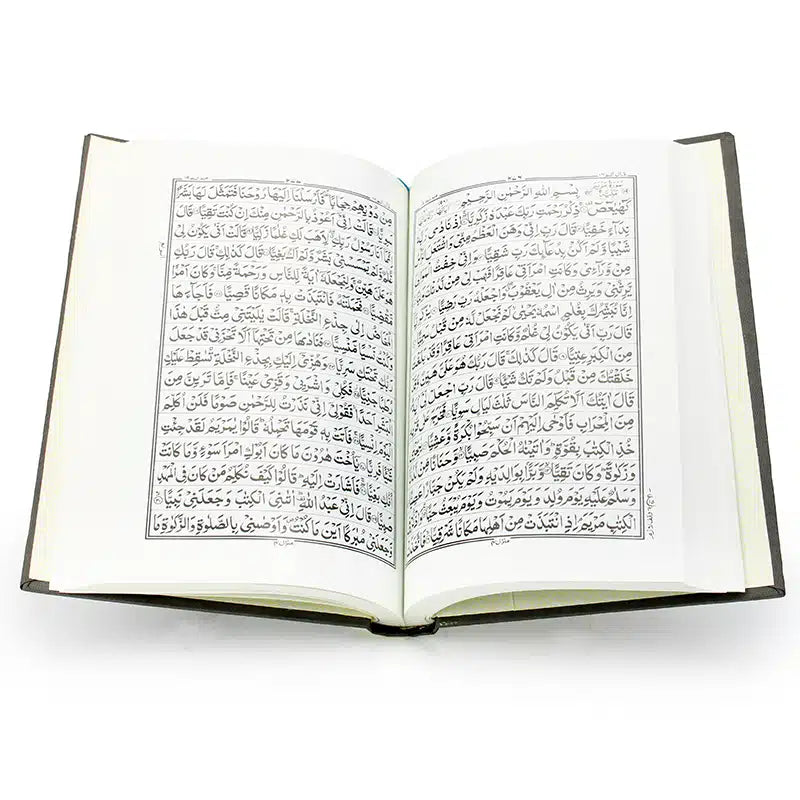 بِسْمِ اللهِ الرَّحْمٰنِ الرَّحِيْمِ
كٓهٰيٰعٓصٓ ذِكْرُ رَحْمَتِ رَبِّكَ عَبْدَهٗ زَكَرِيَّا اِذْ نَادٰى رَبَّهٗ
نِدَآءً خَفِيًّا قَالَ رَبِّ اِنِّيْ وَهَنَ الْعَظْمُ مِنِّيْ وَاشْتَعَلَ الرَّاْسُ
شَيْبًا وَّلَمْ اَكُنْۢ بِدُعَآئِكَ رَبِّ شَقِيًّا وَاِنِّيْ خِفْتُ الْمَوَالِيَ
مِنْ وَّرَآءِيْ وَكَانَتِ امْرَاَتِيْ عَاقِرًا فَهَبْ لِيْ مِنْ لَّدُنْكَ وَلِيًّا
يَّرِثُنِيْ وَيَرِثُ مِنْ اٰلِ يَعْقُوْبَ وَاجْعَلْهُ رَبِّ رَضِيًّا
اِنَّا نُبَشِّرُكَ بِغُلٰمِ اسْمُهٗ يَحْيٰى لَمْ نَجْعَلْ لَّهٗ مِنْ قَبْلُ سَمِيًّا
قَالَ رَبِّ اَنّٰى يَكُوْنُ لِيْ غُلٰمٌ وَّكَانَتِ امْرَاَتِيْ عَاقِرًا وَّقَدْ بَلَغْتُ
مِنَ الْكِبَرِ عِتِيًّا قَالَ كَذٰلِكَ قَالَ رَبُّكَ هُوَ عَلَيَّ هَيِّنٌ
خَلَقْتُكَ مِنْ قَبْلُ وَلَمْ تَكُ شَيْئًا قَالَ رَبِّ اجْعَلْ لِّيْ
قَالَ اٰيَتُكَ اَلَّا تُكَلِّمَ النَّاسَ ثَلٰثَ لَيَالٍ سَوِيًّا فَخَرَجَ
مِنَ الْمِحْرَابِ فَاَوْحٰى اِلَيْهِمْ اَنْ سَبِّحُوْا بُكْرَةً وَّعَشِيًّا
خُذِ الْكِتٰبَ بِقُوَّةٍ وَاٰتَيْنٰهُ الْحُكْمَ صَبِيًّا وَّحَنَانًا مِّنْ
وَزَكٰوةً وَكَانَ تَقِيًّا وَّبَرًّۢا بِوَالِدَيْهِ وَلَمْ يَكُنْ جَبَّارًا
وَسَلٰمٌ عَلَيْهِ يَوْمَ وُلِدَ وَيَوْمَ يَمُوْتُ وَيَوْمَ يُبْعَثُ حَيًّا
الْكِتٰبِ مَرْيَمَ اِذِ انْتَبَذَتْ مِنْ اَهْلِهَا مَكَانًا شَرْقِيًّا
منزل ٤
مِنْ دُوْنِهِمْ حِجَابًا فَاَرْسَلْنَآ اِلَيْهَا رُوْحَنَا فَتَمَثَّلَ لَهَا بَشَرًا
سَوِيًّا قَالَتْ اِنِّيْٓ اَعُوْذُ بِالرَّحْمٰنِ مِنْكَ اِنْ كُنْتَ تَقِيًّا قَالَ
اِنَّمَآ اَنَا رَسُوْلُ رَبِّكِ لِاَهَبَ لَكِ غُلٰمًا زَكِيًّا قَالَتْ اَنّٰى يَكُوْنُ لِيْ
غُلٰمٌ وَّلَمْ يَمْسَسْنِيْ بَشَرٌ وَّلَمْ اَكُ بَغِيًّا قَالَ كَذٰلِكِ قَالَ رَبُّكِ
هُوَ عَلَيَّ هَيِّنٌ وَلِنَجْعَلَهٗٓ اٰيَةً لِّلنَّاسِ وَرَحْمَةً مِّنَّا وَكَانَ اَمْرًا
مَّقْضِيًّا فَحَمَلَتْهُ فَانْتَبَذَتْ بِهٖ مَكَانًا قَصِيًّا فَاَجَآءَهَا
الْمَخَاضُ اِلٰى جِذْعِ النَّخْلَةِ قَالَتْ يٰلَيْتَنِيْ مِتُّ قَبْلَ هٰذَا
وَكُنْتُ نَسْيًا مَّنْسِيًّا فَنَادٰىهَا مِنْ تَحْتِهَآ اَلَّا تَحْزَنِيْ قَدْ جَعَلَ
رَبُّكِ تَحْتَكِ سَرِيًّا وَهُزِّيْٓ اِلَيْكِ بِجِذْعِ النَّخْلَةِ تُسٰقِطْ عَلَيْكِ
رُطَبًا جَنِيًّا فَكُلِيْ وَاشْرَبِيْ وَقَرِّيْ عَيْنًا فَاِمَّا تَرَيِنَّ مِنَ
الْبَشَرِ اَحَدًا فَقُوْلِيْٓ اِنِّيْ نَذَرْتُ لِلرَّحْمٰنِ صَوْمًا فَلَنْ اُكَلِّمَ
الْيَوْمَ اِنْسِيًّا فَاَتَتْ بِهٖ قَوْمَهَا تَحْمِلُهٗ قَالُوْا يٰمَرْيَمُ لَقَدْ جِئْتِ
شَيْئًا فَرِيًّا يٰٓاُخْتَ هٰرُوْنَ مَا كَانَ اَبُوْكِ امْرَاَ سَوْءٍ وَّمَا كَانَتْ
اُمُّكِ بَغِيًّا فَاَشَارَتْ اِلَيْهِ قَالُوْا كَيْفَ نُكَلِّمُ مَنْ كَانَ فِي الْمَهْدِ
صَبِيًّا قَالَ اِنِّيْ عَبْدُ اللهِ اٰتٰىنِيَ الْكِتٰبَ وَجَعَلَنِيْ نَبِيًّا
وَّجَعَلَنِيْ مُبٰرَكًا اَيْنَ مَا كُنْتُ وَاَوْصٰنِيْ بِالصَّلٰوةِ وَالزَّكٰوةِ مَا
منزل ٤